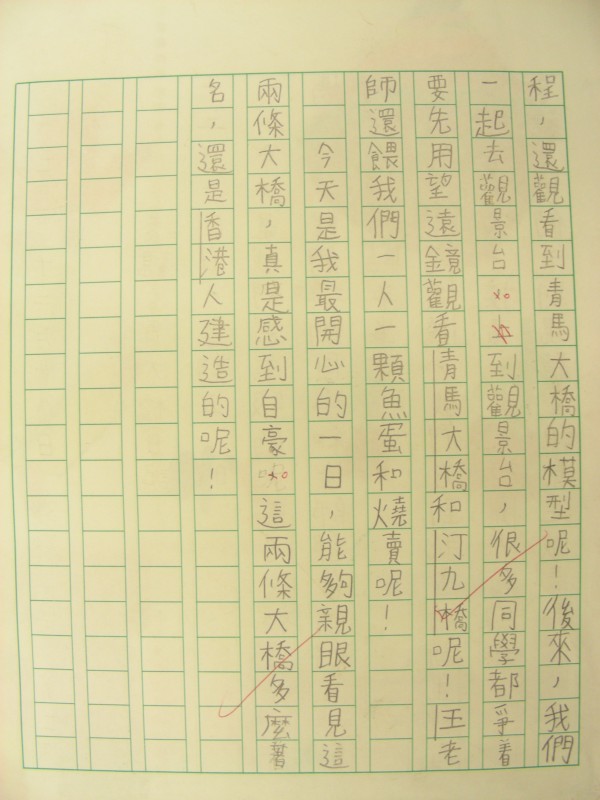 程，還觀看到青馬大橋的模型呢！後來，我們
一起去觀景台。到觀景台，很多同學都爭着
要先用望遠鏡觀看青馬大橋和汀九橋呢！王老
師還餵我們一人一顆魚蛋和燒賣呢！
今天是我最開心的一日，能夠親眼看見這
兩條大橋，真是感到自豪。這兩條大橋多麼著
名，還是香港人建造的呢！